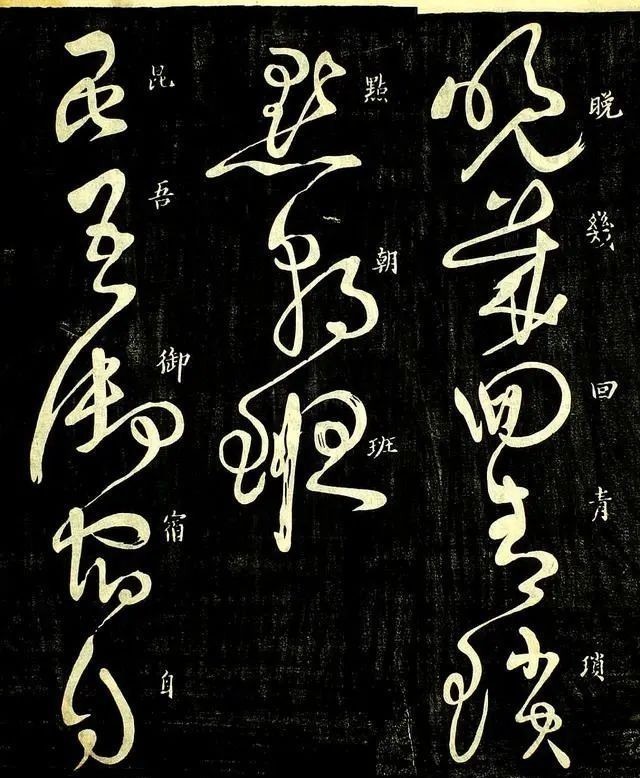 晚幾回青瑣
點朝班
昆吾御宿自